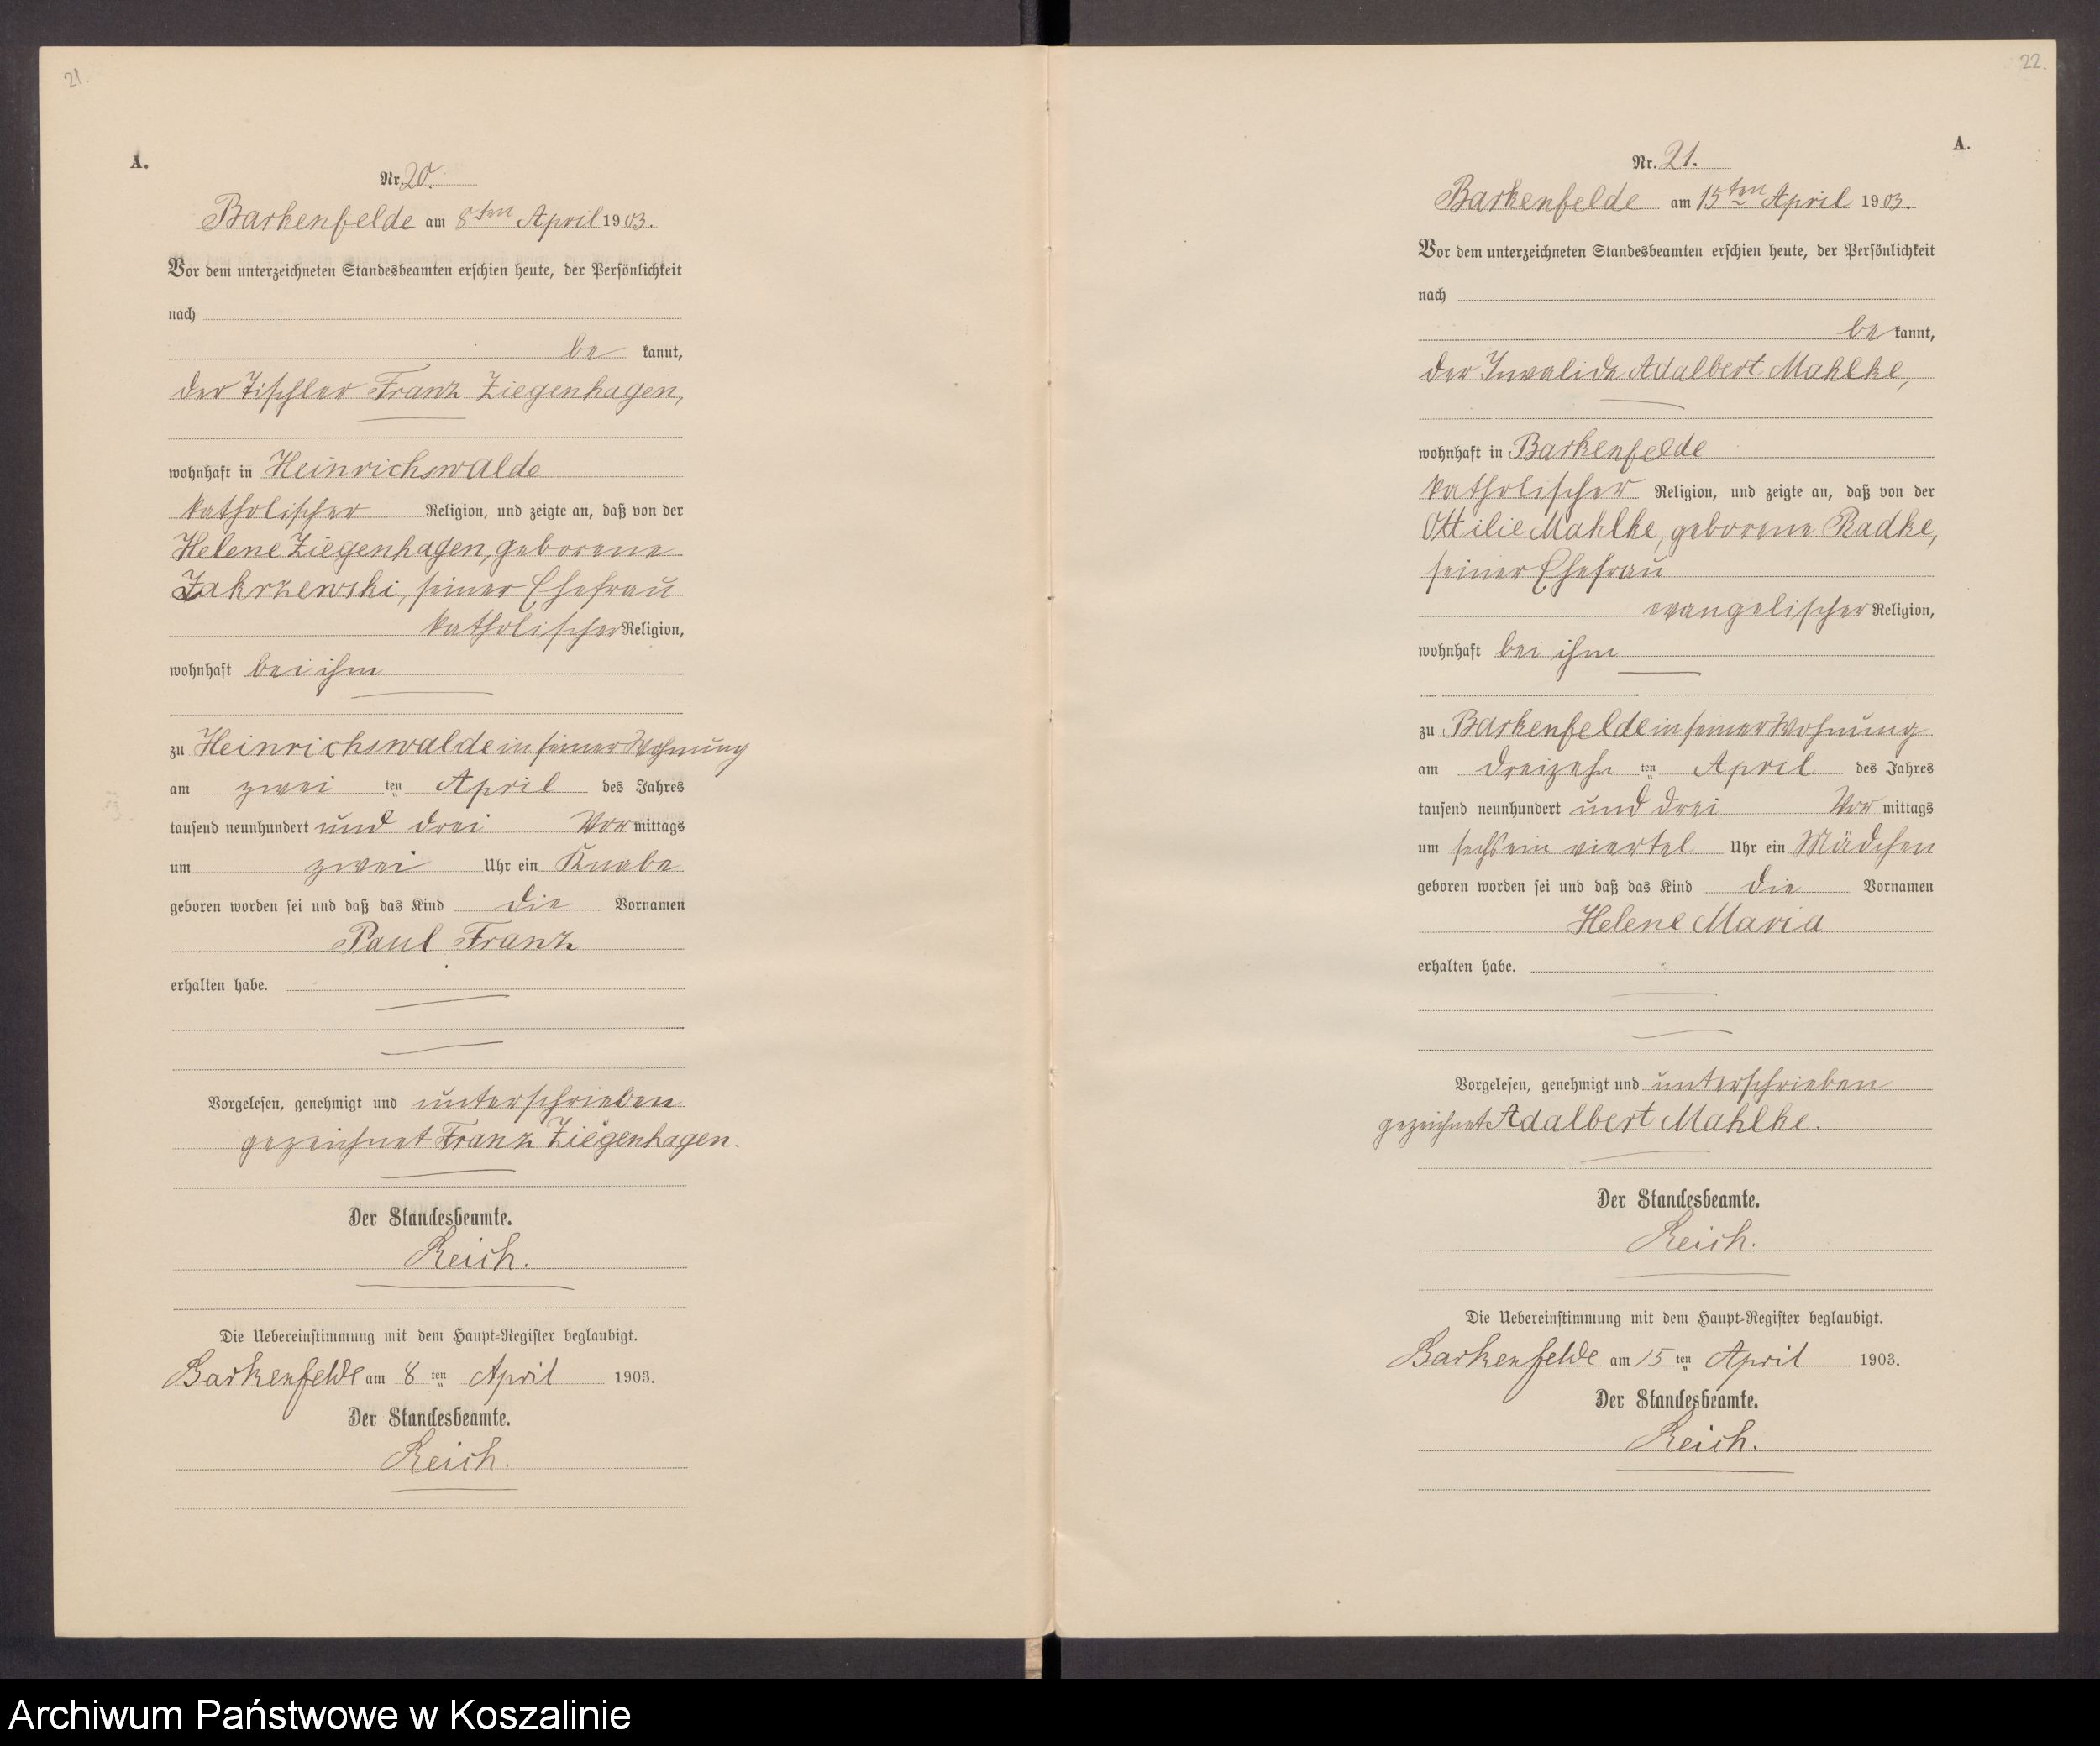 21.
A.
Nr. 20.
Barkenfelde am 8ten April 1903.
Vor dem unterzeichneten Standesbeamten erschien heute, der Persönlichkeit
nach
be kannt,
der Tischler Franz Ziegenhagen,
wohnhaft in Heinrichswalde
katholischer Religion, und zeigte an, daß von der
Helene Ziegenhagen, geborene
Zakrzewski, seiner Ehefrau
katholischer Religion,
wohnhaft bei ihm
zu Heinrichswalde in seiner Wohnung
am zwei ten April des Jahres
tausend neunhundert und drei Vor mittags
um zwei Uhr ein Knabe
geboren worden sei und daß das Kind die Vornamen
Paul Franz
erhalten habe.
Vorgelesen, genehmigt und unterschrieben
gezeichnet Franz Ziegenhagen.
Der Standesbeamte.
Reich.
Die Uebereinstimmung mit dem Haupt-Register beglaubigt.
Barkenfelde am 8 ten April 1903.
Der Standesbeamte.
Reich.
22.
A.
Nr. 21.
Barkenfelde am 15ten April 1903.
Vor dem unterzeichneten Standesbeamten erschien heute, der Persönlichkeit
nach
be kannt,
der Invalide Adalbert Mahlke,
wohnhaft in Barkenfelde
katholischer Religion, und zeigte an, daß von der
Ottilie Mahlke, geborene Radke,
seiner Ehefrau
evangelischer Religion,
wohnhaft bei ihm
zu Barkenfelde in seiner Wohnung
am dreizehn ten April des Jahres
tausend neunhundert und drei Vor mittags
um sechs ein viertel Uhr ein Mädchen
geboren worden sei und daß das Kind die Vornamen
Helene Maria
erhalten habe.
Vorgelesen, genehmigt und unterschrieben
gezeichnet Adalbert Mahlke.
Der Standesbeamte.
Reich.
Die Uebereinstimmung mit dem Haupt-Register beglaubigt.
Barkenfelde am 15 ten April 1903.
Der Standesbeamte.
Reich.
Archiwum Państwowe w Koszalinie